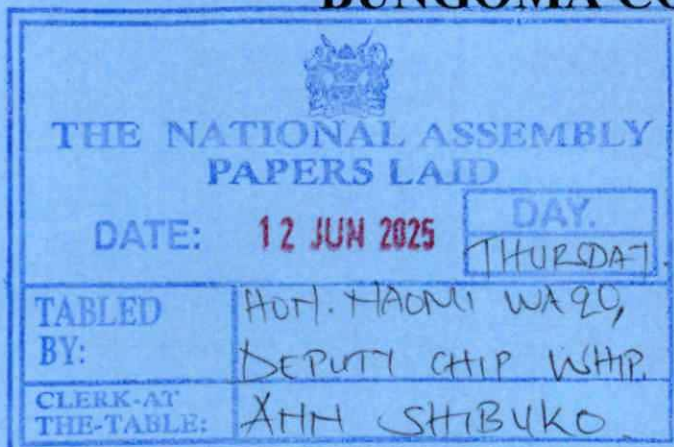 BUNGOMA CO
THE NATIONAL ASSEMBLY
PAPERS LAID
DATE: 12 JUN 2025
DAY.
THURSDAY.
TABLED BY:
HON. NAOMI WAQO,
DEPUTY CHIP WHIP.
CLERK-AT THE-TABLE:
ANN SHIBUKO